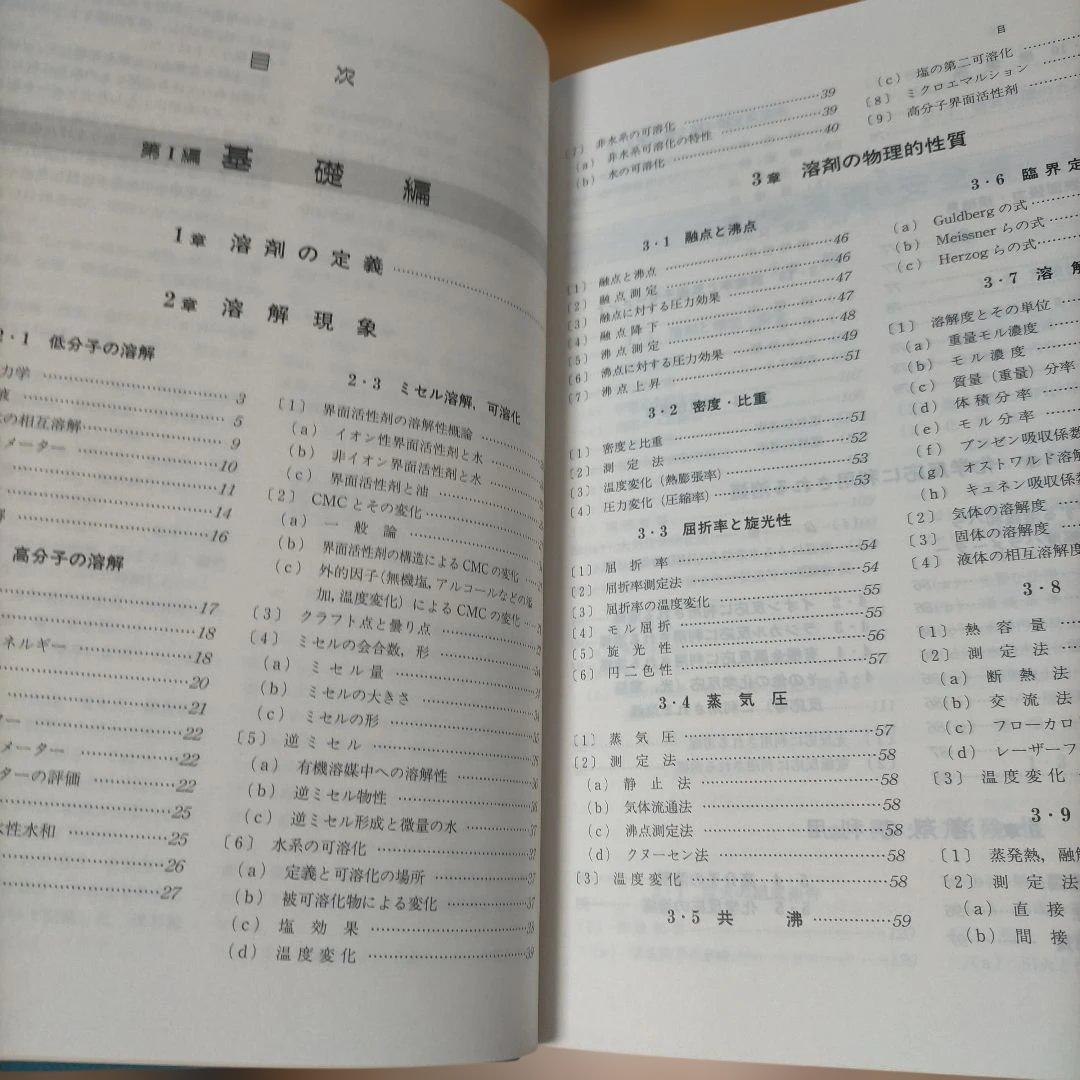 目次
第1編 基礎編
1章 溶剤の定義
2章 溶解現象
2・1 低分子の溶解
力学 3
液 5
の相互溶解 9
メーター 10
11
14
解 16
高分子の溶解
17
18
ネルギー 18
20
21
ター 22
メーター 22
ターの評価 22
25
水性水和 25
26
27
2・3 ミセル溶解，可溶化
〔1〕 界面活性剤の溶解性概論
(a) イオン性界面活性剤と水
(b) 非イオン界面活性剤と水
(c) 界面活性剤と油
〔2〕 CMCとその変化
(a) 一般論
(b) 界面活性剤の構造によるCMCの変化
(c) 外的因子(無機塩，アルコールなどの添
加，温度変化)によるCMCの変化
〔3〕 クラフト点と曇り点
〔4〕 ミセルの会合数，形
(a) ミセル量
(b) ミセルの大きさ
(c) ミセルの形
〔5〕 逆ミセル
(a) 有機溶媒中への溶解性
(b) 逆ミセル物性
(c) 逆ミセル形成と微量の水 37
〔6〕 水系の可溶化 37
(a) 定義と可溶化の場所 37
(b) 被可溶化物による変化 37
(c) 塩効果 38
(d) 温度変化 39
目
〔7〕 非水系の可溶化 39
(a) 非水系可溶化の特性 39
(b) 水の可溶化 40
(c) 塩の第二可溶化
〔8〕 ミクロエマルション
〔9〕 高分子界面活性剤
3章 溶剤の物理的性質
3・1 融点と沸点
〔1〕 融点と沸点 46
〔2〕 融点測定 46
〔3〕 融点に対する圧力効果 47
〔4〕 融点降下 47
〔5〕 沸点測定 48
〔6〕 沸点に対する圧力効果 49
〔7〕 沸点上昇 51
3・2 密度・比重
〔1〕 密度と比重 51
〔2〕 測定法 52
〔3〕 温度変化(熱膨張率) 53
〔4〕 圧力変化(圧縮率) 53
3・3 屈折率と旋光性
〔1〕 屈折率 54
〔2〕 屈折率測定法 54
〔3〕 屈折率の温度変化 55
〔4〕 モル屈折 55
〔5〕 旋光性 56
〔6〕 円二色性 57
3・4 蒸気圧
〔1〕 蒸気圧 57
〔2〕 測定法 58
(a) 静止法 58
(b) 気体流通法 58
(c) 沸点測定法 58
(d) クヌーセン法 58
〔3〕 温度変化 58
3・5 共沸 59
3・6 臨界定
(a) Guldbergの式
(b) Meissnerらの式
(c) Herzogらの式
3・7 溶解
〔1〕 溶解度とその単位
(a) 重量モル濃度
(b) モル濃度
(c) 質量(重量)分率
(d) 体積分率
(e) モル分率
(f) ブンゼン吸収係数
(g) オストワルド溶解
(h) キュネン吸収係
〔2〕 気体の溶解度
〔3〕 固体の溶解度
〔4〕 液体の相互溶解度
3・8
〔1〕 熱容量
〔2〕 測定法
(a) 断熱法
(b) 交流法
(c) フローカロ
(d) レーザーフ
〔3〕 温度変化
3・9
〔1〕 蒸発熱，融解
〔2〕 測定法
(a) 直接
(b) 間接